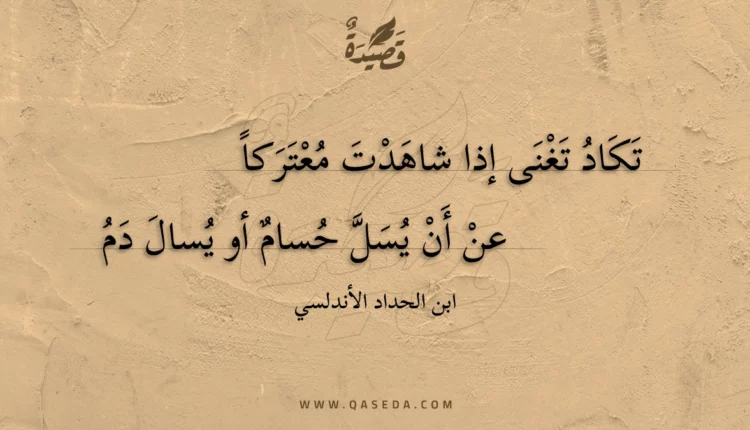 قَصِيدَةٌ
تَكَادُ تَغْنَى إذا شاهَدْتَ مُعْتَرَكاً
عنْ أَنْ يُسَلَّ حُسامٌ أو يُسالَ دَمُ
ابن الحداد الأندلسي
WWW.QASEDA.COM